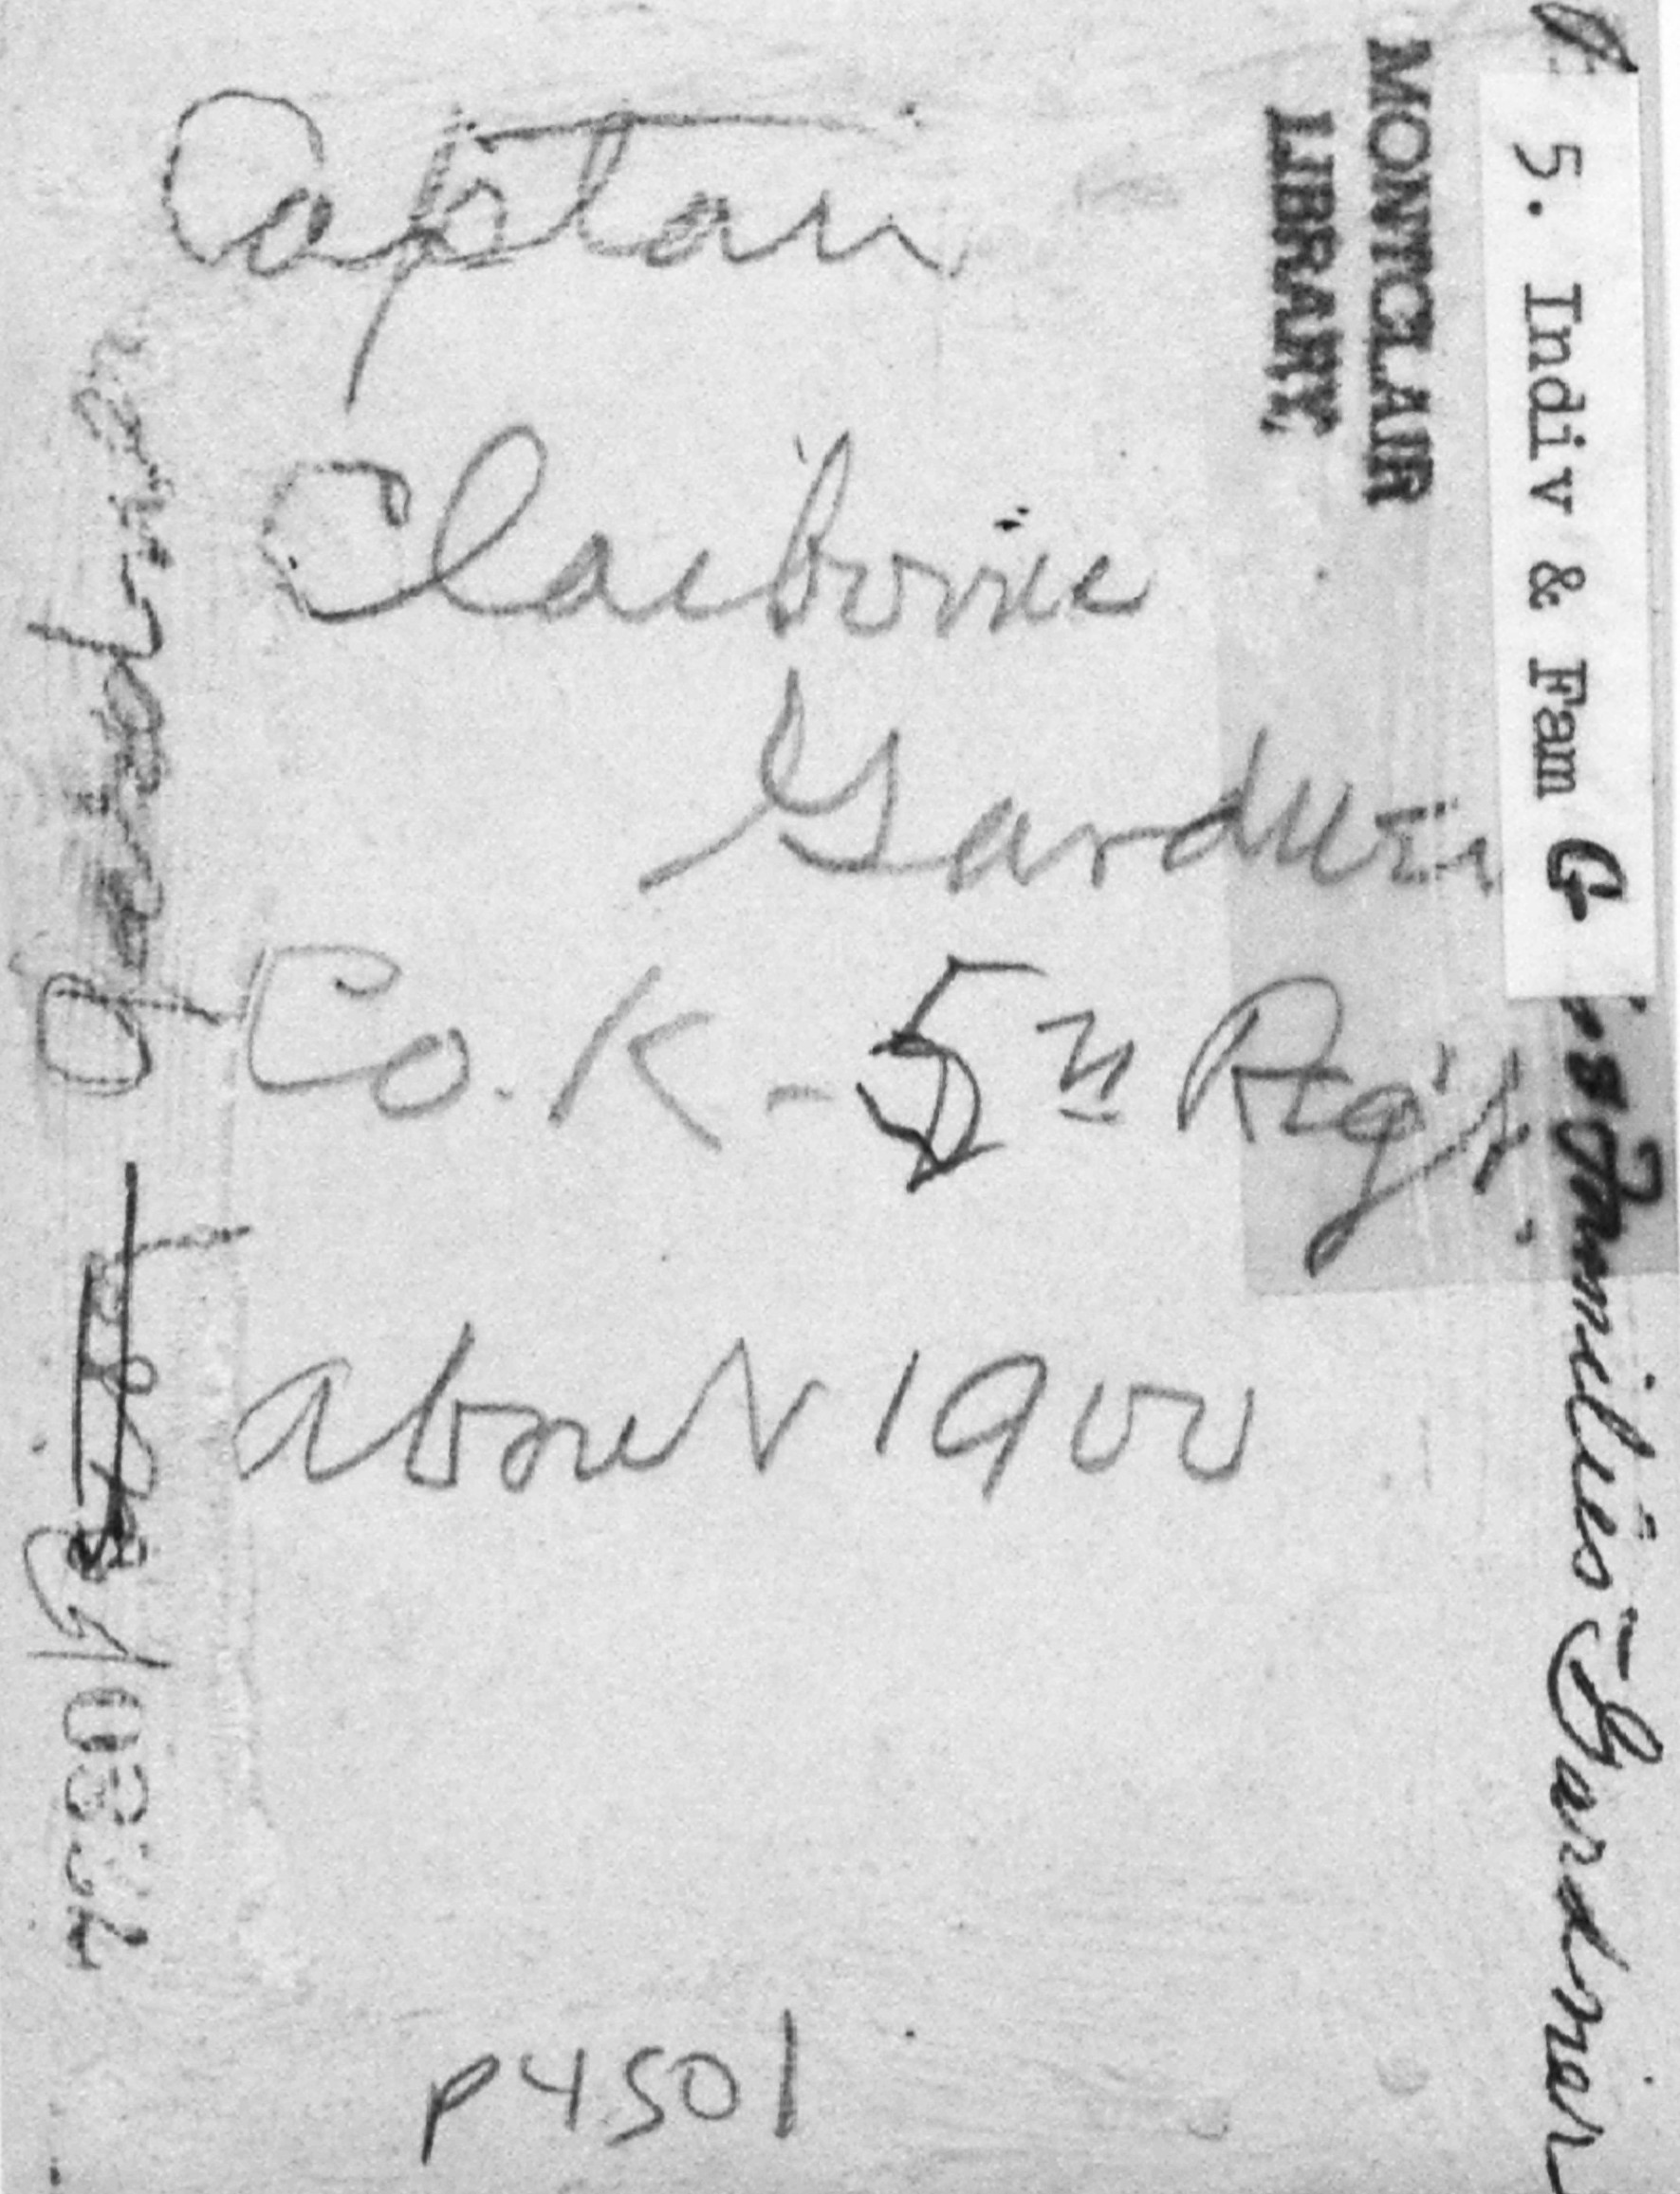 Captain
Claiborne
Gardner
Co. K - 5th Reg't.
about 1900
P4501
MONTCLAIR
LIBRARY
5. Indiv & Fam G
Families - Gardner
Gardner